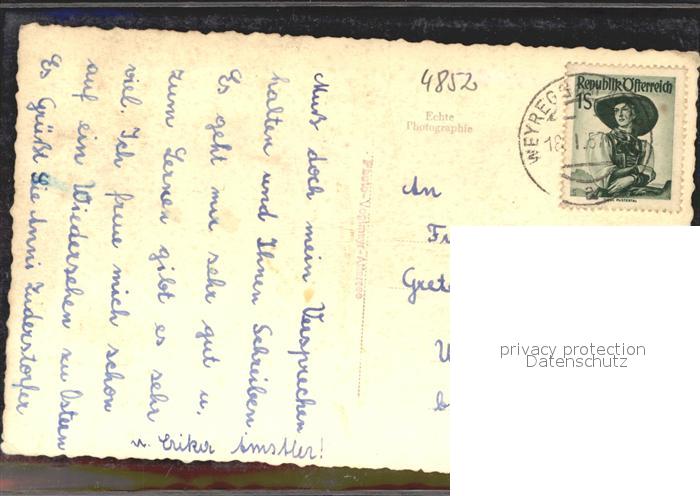 Muß doch mein Versprechen
halten und Ihnen Schreiben.
Es geht mir sehr gut u.
zum Lernen gibt es sehr
viel. Ich freue mich schon
auf ein Wiedersehen zu Ostern
Es Grüßt Sie Anni Zuderstorfer
u. Erika Amstler!
4852
Echte
Photographie
An
Republik Österreich
1S
WEYREGG
18. I. 51
a
privacy protection
Datenschutz